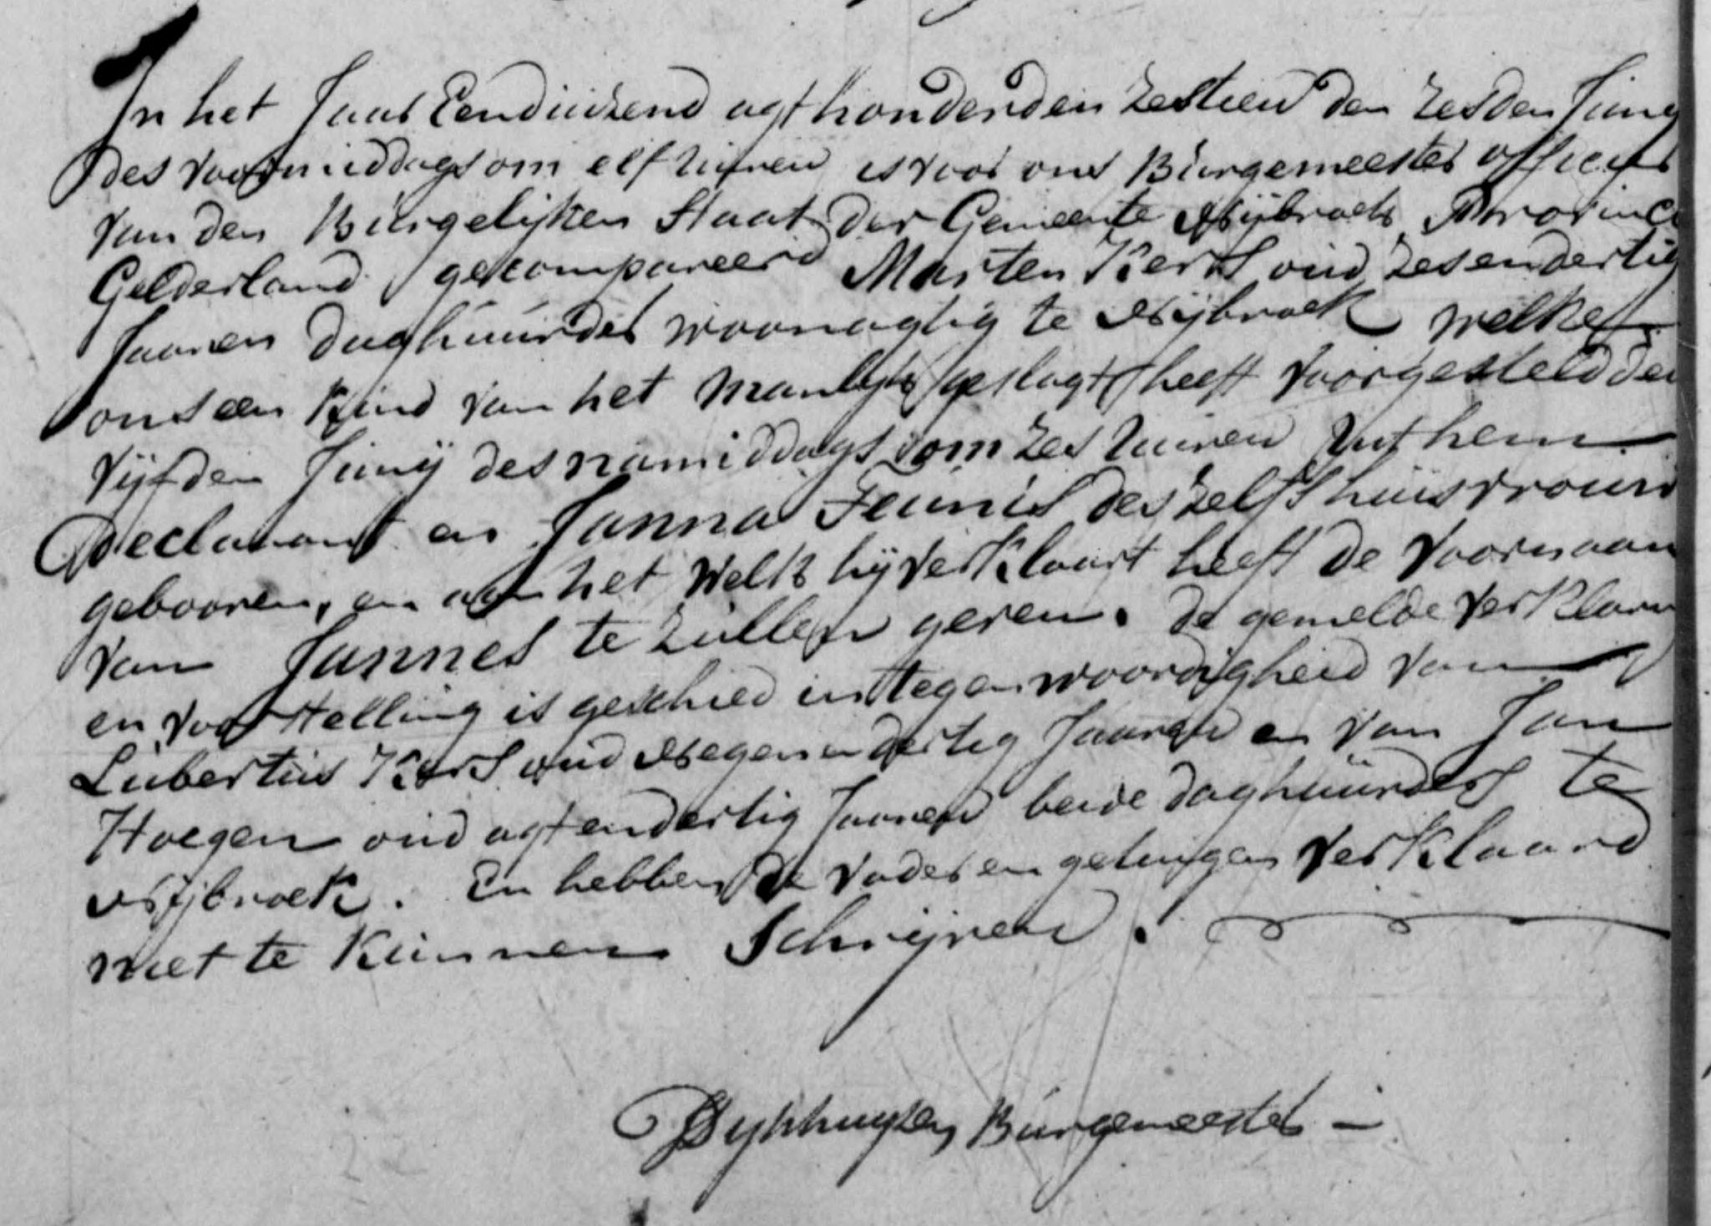 In het Jaar Eenduizend agthonderden zestien den zesden Juny
des voormiddags om elf uuren is voor ons Burgemeester officier
van den Burgelijken Staat der Gemeente Nijbroek Provincie
Gelderland gecompareerd Marten Kers oud zesendertig
Jaaren daghuurder woonagtig te Nijbroek welke
ons een Kind van het Manlijk geslagt heeft voorgesteld den
vijfden Junij des namiddags om zes uuren uit hem
Declarant en Janna Teunis deszelfs huisvrouw
gebooren, en aan het welk hij verklaart heeft de voornaam
van Jannes te zullen geven. de gemelde verklaar
en voorstelling is geschied in tegenwoordigheid van
Lubertus Kers oud Negenendertig Jaaren en van Jan
Hoegen oud agtendertig Jaaren beide daghuurders te
Nijbroek. En hebben de vader en getuigen verklaard
niet te Kunnen Schrijven.
Dykhuyzen Burgemeester